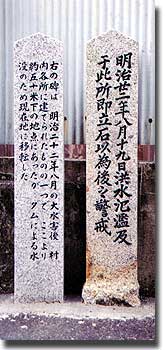 明治廿二年八月十九日洪水氾濫及
于此所即立石以為後之警戒
右の碑は、明治二十二年八月の大水害後、村
内各所に建てられたものの一つで、ここより
約五十米下の地点にあったが、ダムによる水
没のため現在地に移転した